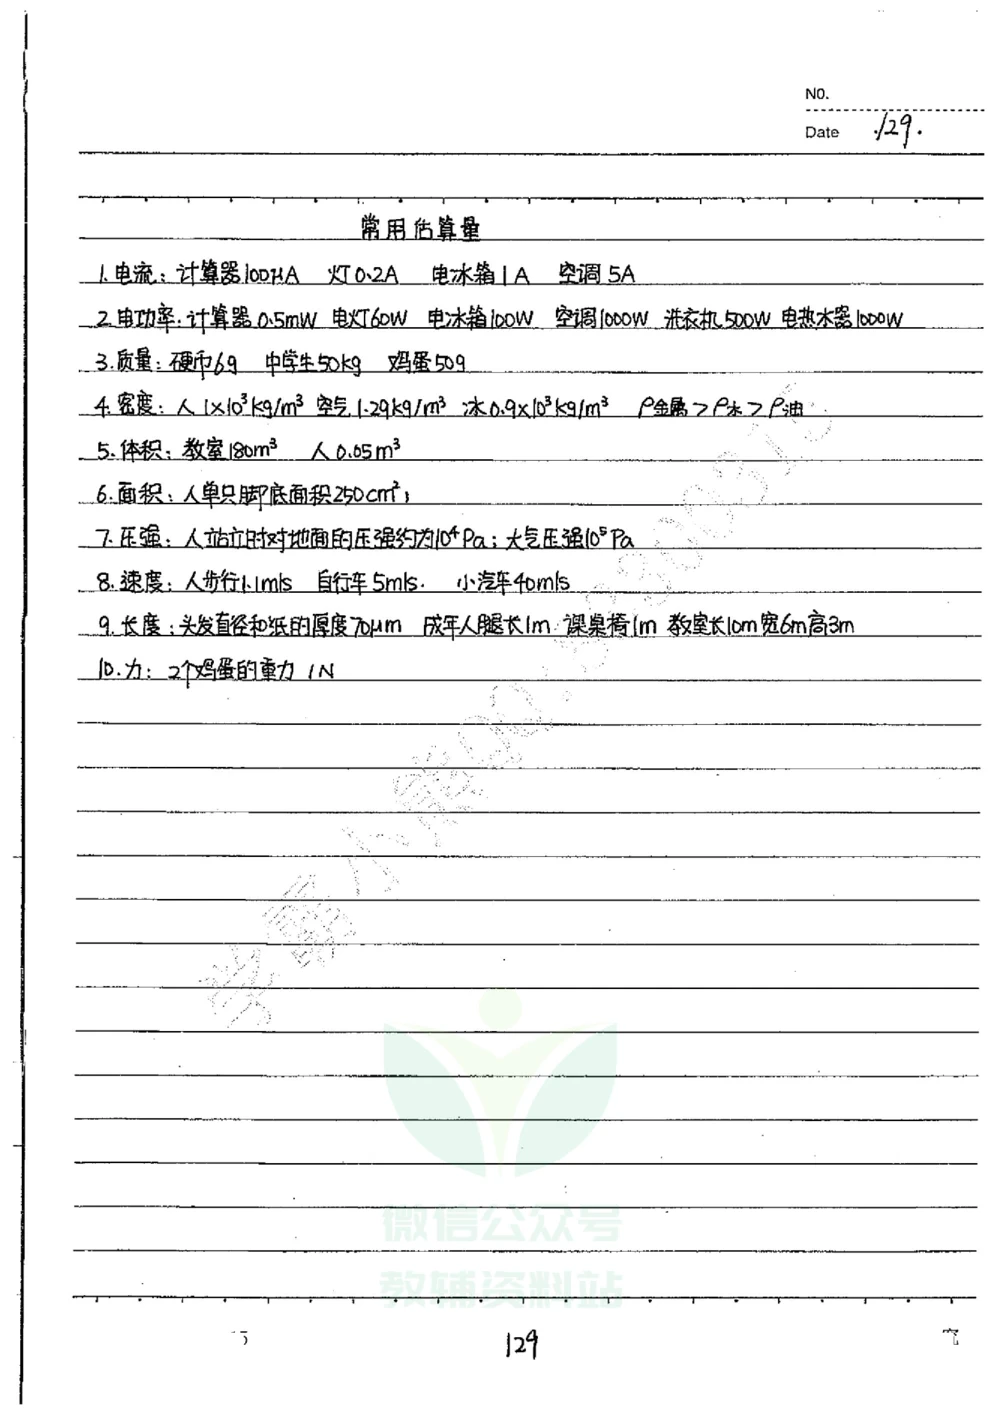 NO.
Date 129.
常用估算量
1.电流：计算器100μA 灯0.2A 电冰箱1A 空调5A
2.电功率：计算器0.5mW 电灯60W 电冰箱100W 空调1000W 洗衣机500W 电热水器1000W
3.质量：硬币6g 中学生50kg 鸡蛋50g
4.密度：人1×10³kg/m³ 空气1.29kg/m³ 冰0.9×10³kg/m³ ρ金属>ρ水>ρ油
5.体积：教室180m³ 人0.05m³
6.面积：人单只脚底面积250cm²；
7.压强：人站立时对地面的压强约为10⁴Pa；大气压强10⁵Pa
8.速度：人步行1.1m/s 自行车5m/s. 小汽车40m/s
9.长度：头发直径和纸的厚度70μm 成年人腿长1m 课桌椅1m 教室长10m宽6m高3m
10.力：2个鸡蛋的重力 1N
学霸小熊QQ:
微信公众号
教辅资料站
129